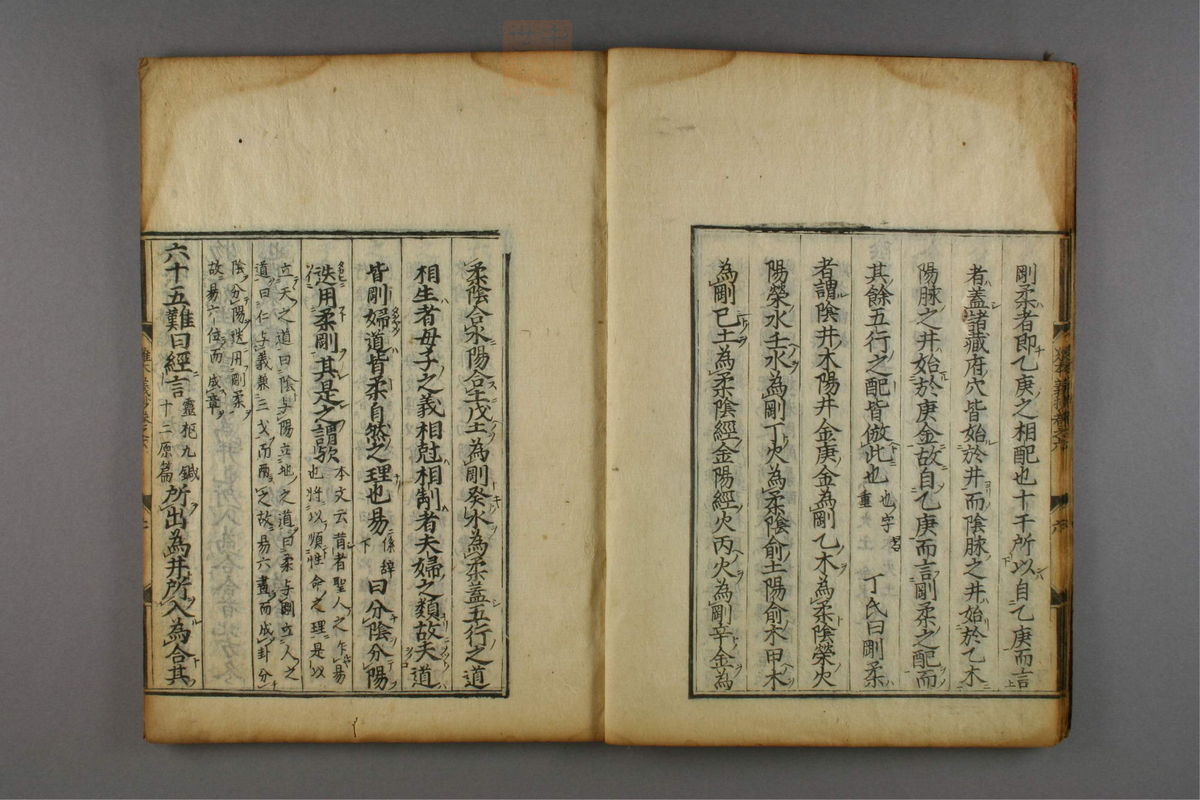 剛柔者即乙庚之相配也十干所以自乙庚而言
者蓋諸藏府穴皆始於井而陰脉之井始於乙木
陽脉之井始於庚金故自乙庚而言剛柔之配而
其餘五行之配皆倣此也 也字 重 丁氏曰剛柔
者謂陰井木陽井金庚金為剛乙木為柔陰榮火
陽榮水壬水為剛丁火為柔陰俞土陽俞木甲木
為剛已土為柔陰經金陽經火丙火為剛辛金為
柔陰合水陽合土戊土為剛癸水為柔蓋五行之道
相生者母子之義相尅相制者夫婦之類故夫道
皆剛婦道皆柔自然之理也易 係辞 下 曰分陰分陽
迭用柔剛其是之謂歟 本文云昔者聖人之作易
也将以順性命之理是以
立天之道曰陰与陽立地之道曰柔与剛立人之
道曰仁与義兼三才而兩之故易六畫而成卦分
陰分陽迭用剛柔
故易六位而成章
六十五難曰經言 靈枢九鍼
十二原篇 所出為井所入為合其